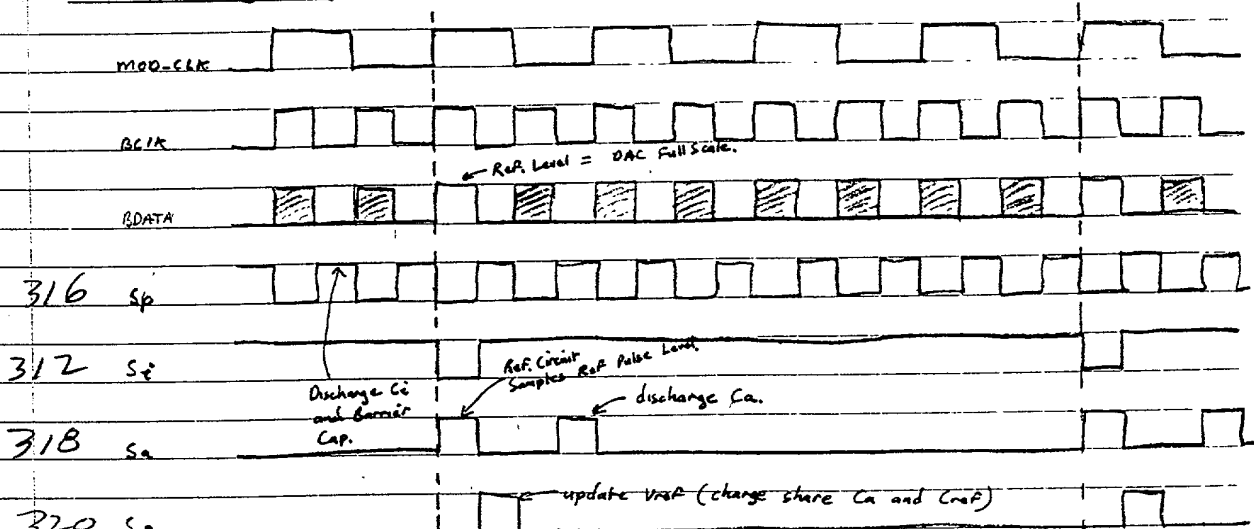 MOD-CLK
BCLK
← Ref. Level = DAC Full Scale.
BDATA
316 Sp
312 Si
Ref. Circuit
Samples Ref Pulse Level.
Discharge Ci
and Barrier
Cap.
← discharge Ca.
318 Sa
← update Vref (charge share Ca and Cref)
320